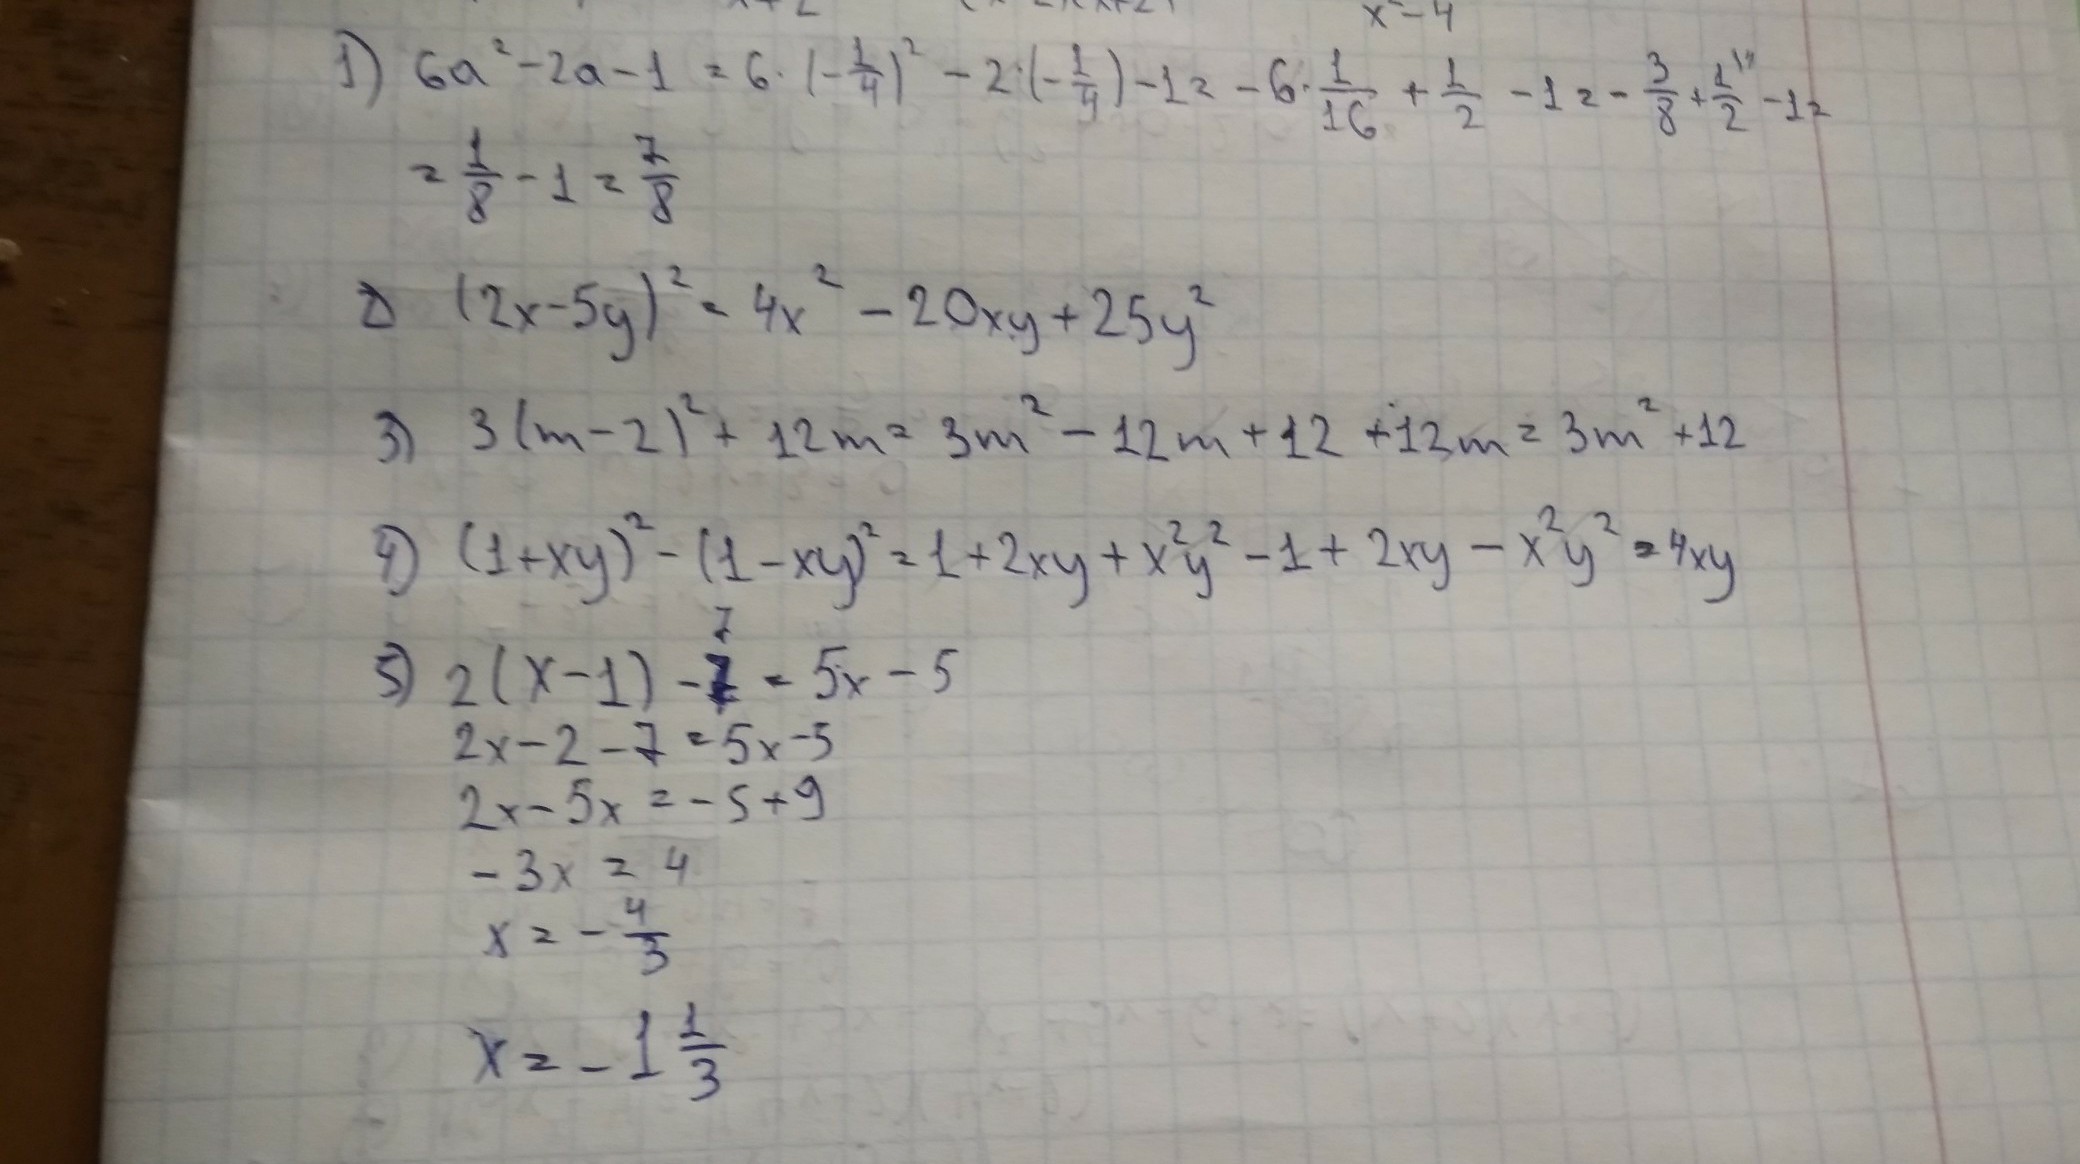 x²-4
1) 6a²-2a-1=6·(-1/4)²-2·(-1/4)-1=-6·1/16+1/2-1=-3/8+1/2-1=
=1/8-1=7/8
2) (2x-5y)²=4x²-20xy+25y²
3) 3(m-2)²+12m=3m²-12m+12+12m=3m²+12
4) (1+xy)²-(1-xy)²=1+2xy+x²y²-1+2xy-x²y²=4xy
7
5) 2(x-1)-7=5x-5
2x-2-7=5x-5
2x-5x=-5+9
-3x=4
x=-4/3
x=-1 1/3